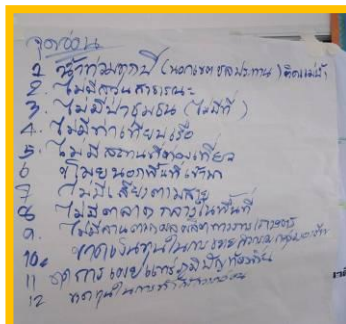 จุดอ่อน
1. น้ำท่วมทุกปี (นอกเขตชลประทาน) ติดแม่น้ำ
2. ไม่มีสวนสาธารณะ
3. ไม่มีป่าชุมชน (ไม่มีที่)
4. ไม่มีท่าเทียบเรือ
5. ไม่มีสถานที่ท่องเที่ยว
6 ขโมยนอกพื้นที่เข้ามา
7 ไม่มีเสียงตามสาย
8 ไม่มีตลาดกลางในพื้นที่
9. ไม่มีลานตากผลผลิตทางการเกษตร
10. ขาดเงินทุนในการ
11 ขาดการเผยแพร่ภูมิปัญญาท้องถิ่น
12 ขาดทุนในการ